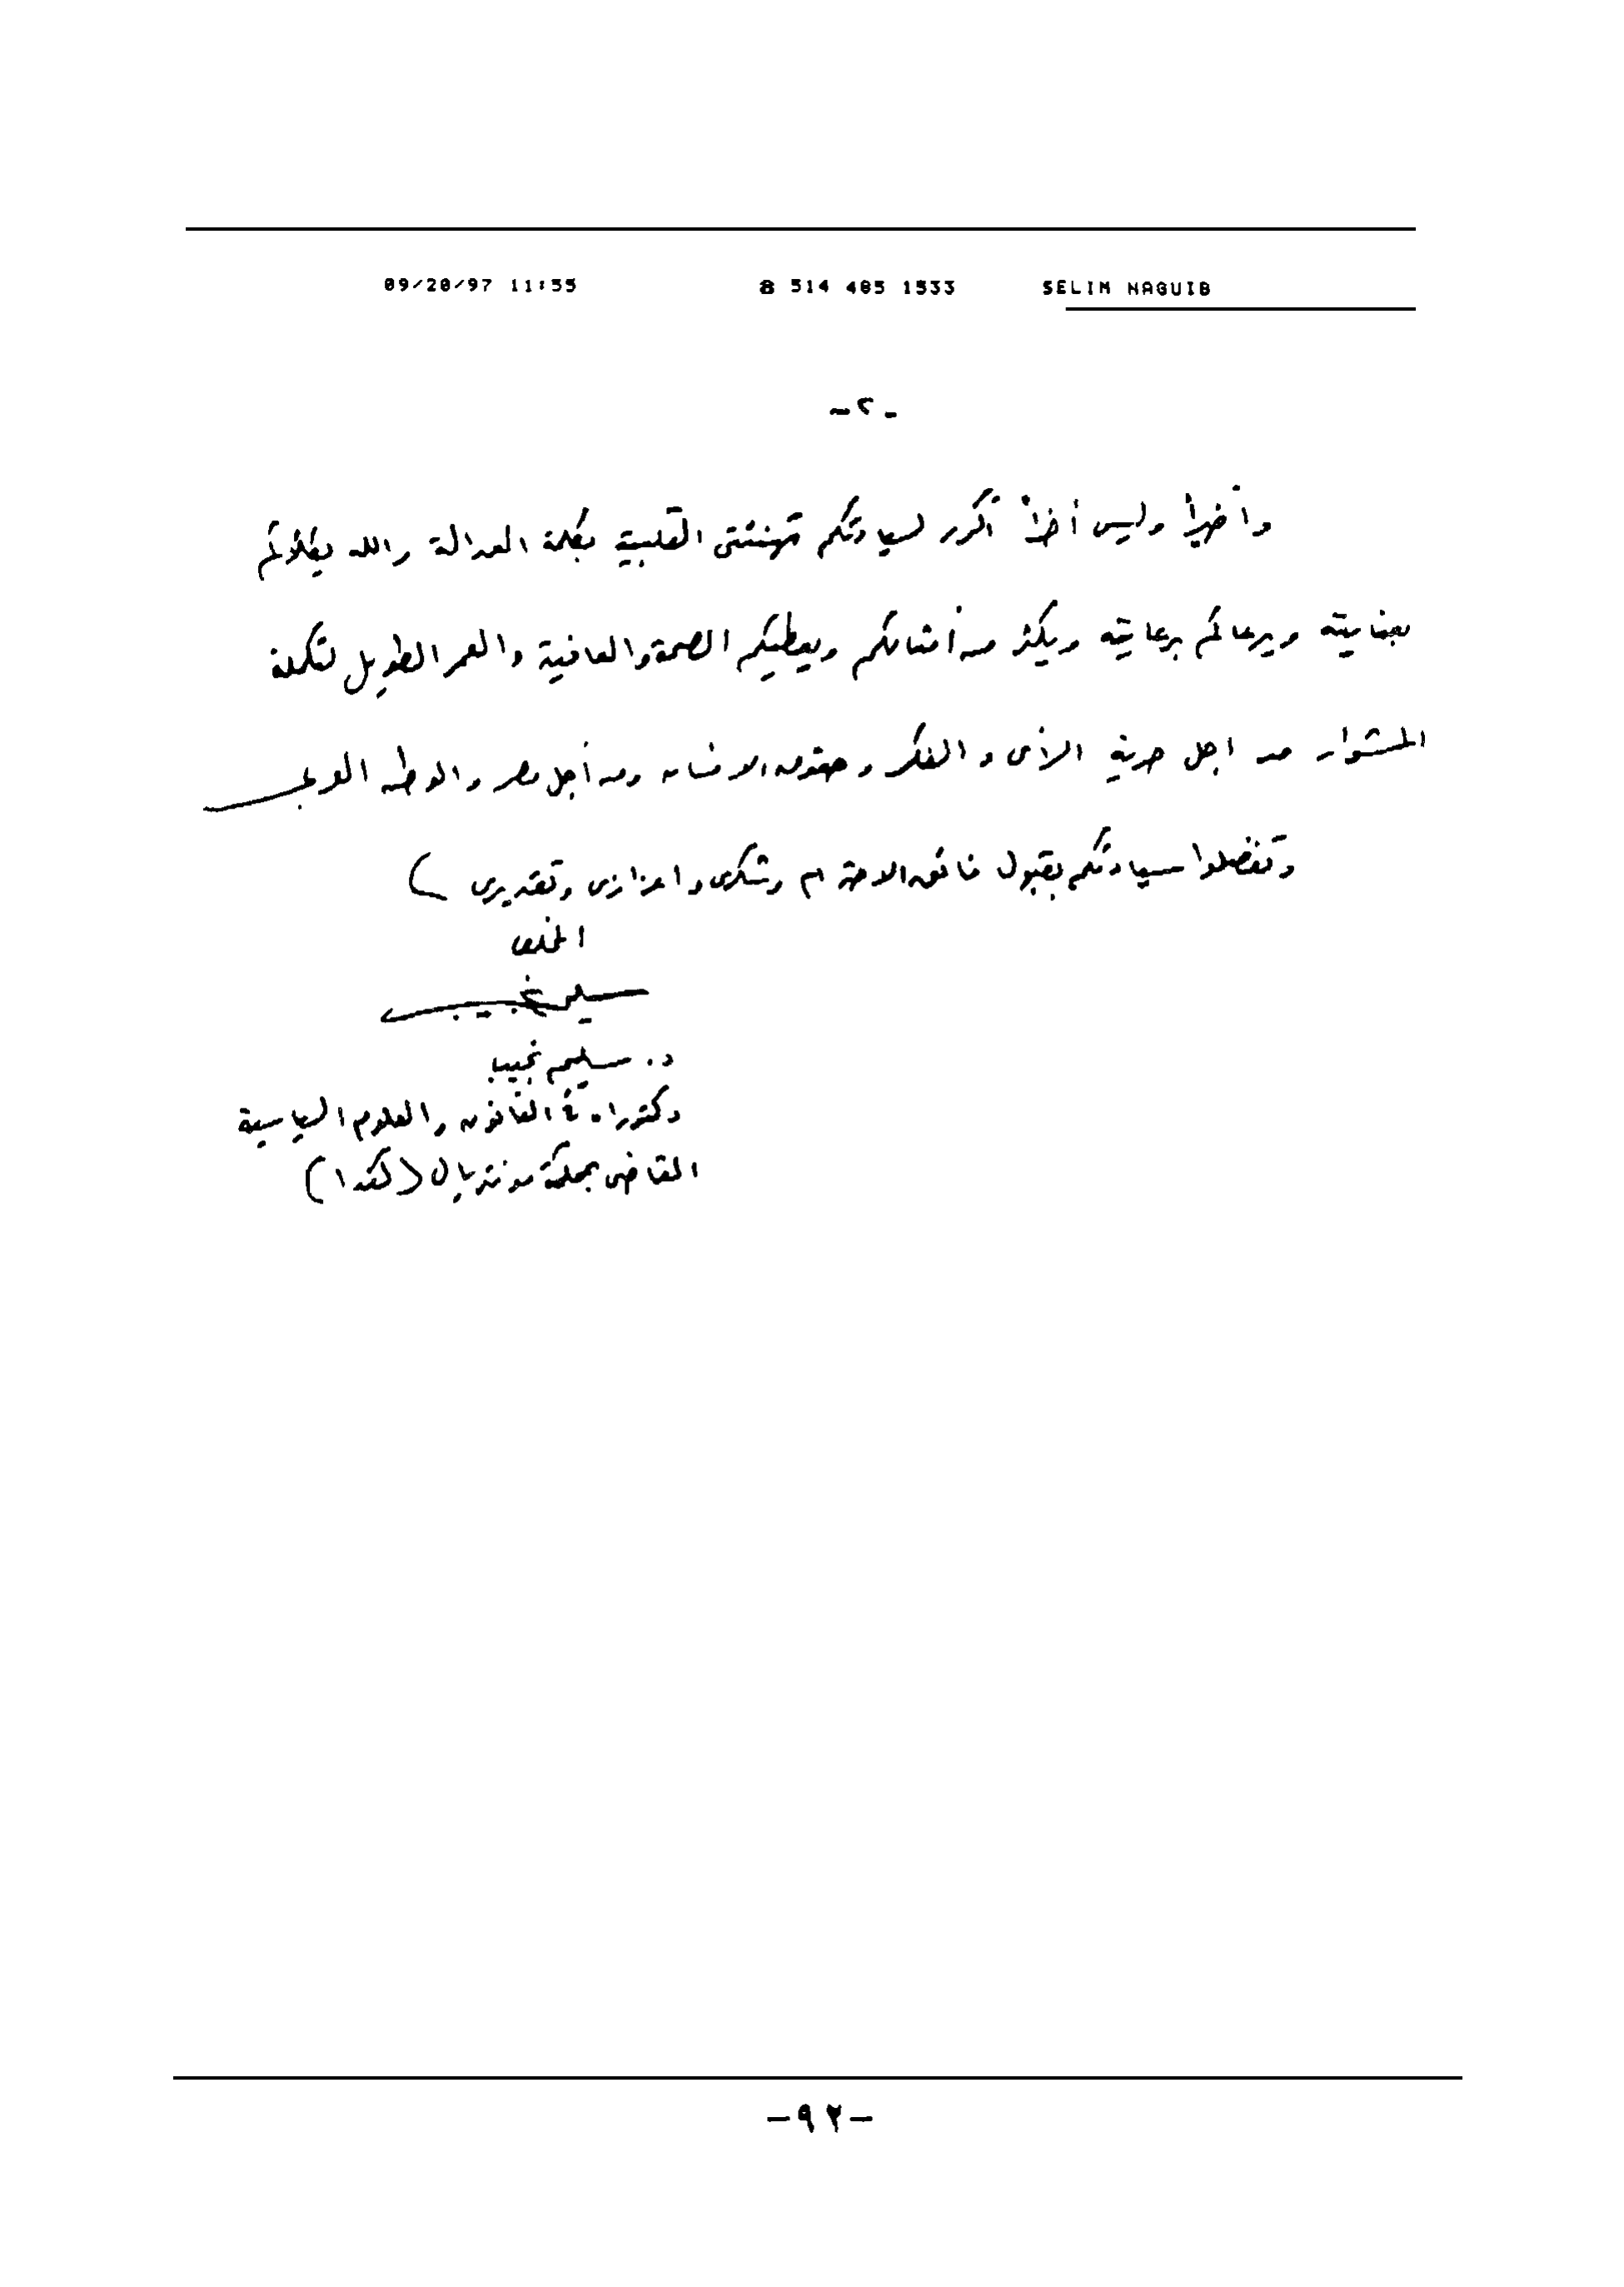 09/20/97 11:55 8 514 485 1533 SELIM NAGUIB
-٢-
وأخيراً وليس أخراً أكرر لسيادتكم تهنئتى القلبية بكلمة العدالة والله يكلؤكم
بعنايته ويرعاكم برعايته ويكثر من أمثالكم ويعطيكم الصحة والعافية والعمر الطويل لتكملة
المشوار من اجل حرية الرأى والفكر وحقوق الانسان ومن أجل مصر والوطن العربى
وتفضلوا سيادتكم بقبول فائق الاحترام وشكرى واعزازى وتقديرى
المخلص
سليم نجيب
د. سليم نجيب
دكتوراه فى القانون والعلوم السياسية
القاضى بمحكمة مونتريال (كندا)
-٩٢-